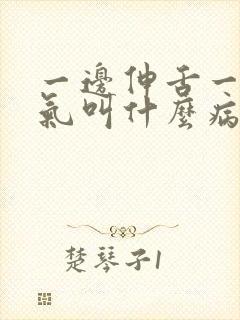 一邊伸舌一
氣叫什麼病
楚琴子1